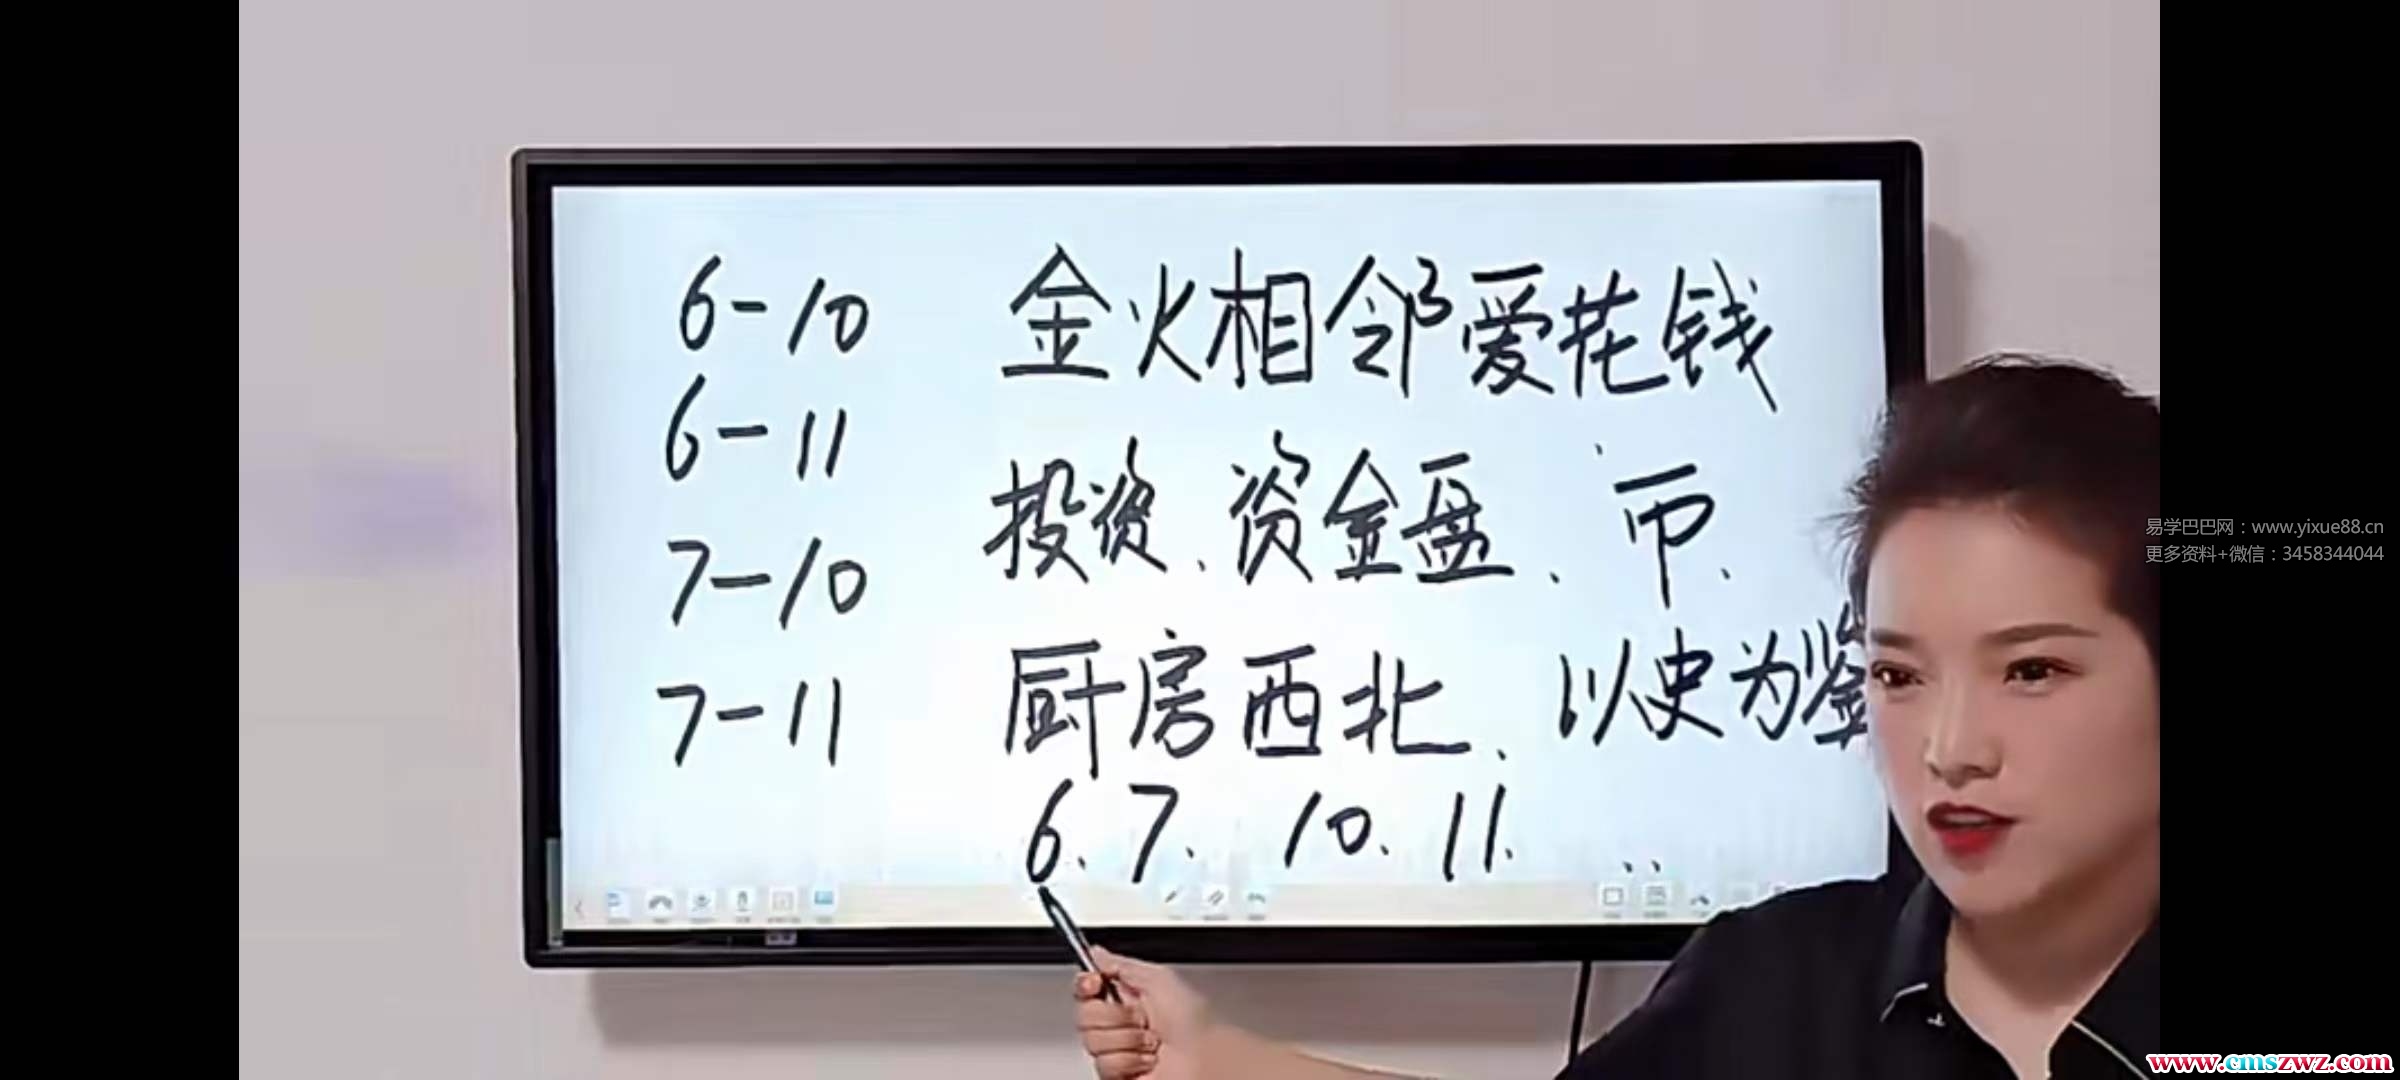 6-10 金火相邻爱花钱
6-11 投资、资金盘、币、
7-10
厨房西北、以史为鉴
7-11
6、7、10、11、
易学巴巴网：www.yixue88.cn
更多资料+微信：3458344044
www.cmszwz.com